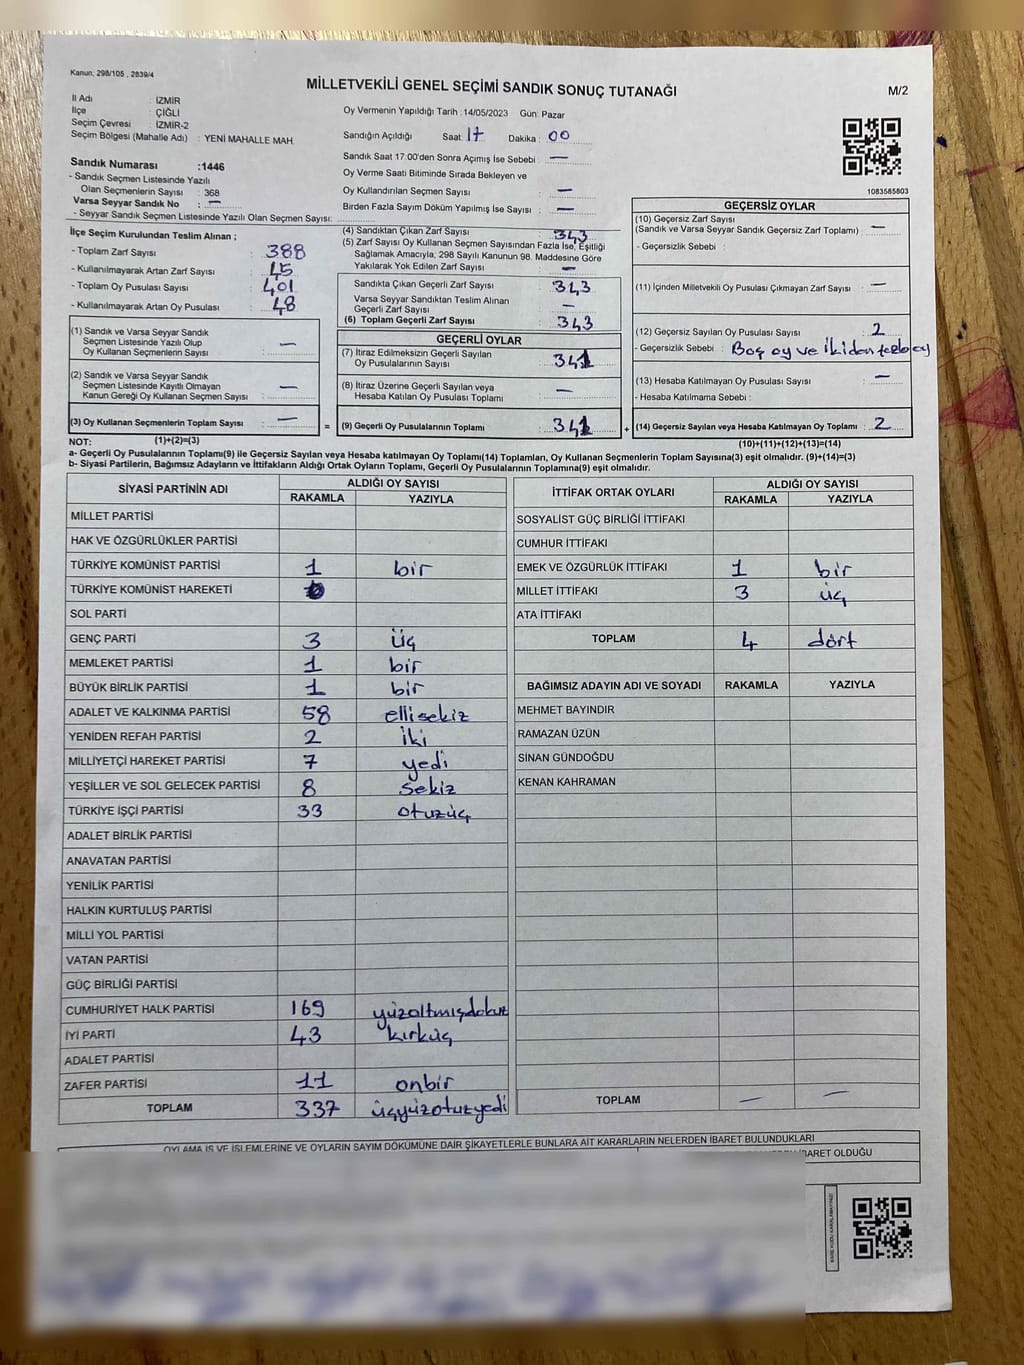 Kanun; 298/105 , 2839/4
MİLLETVEKİLİ GENEL SEÇİMİ SANDIK SONUÇ TUTANAĞI
M/2
İl Adı : İZMİR
İlçe : ÇİĞLİ
Seçim Çevresi : İZMİR-2
Seçim Bölgesi (Mahalle Adı) : YENİ MAHALLE MAH
Sandık Numarası :1446
- Sandık Seçmen Listesinde Yazılı
Olan Seçmenlerin Sayısı : 368
Varsa Seyyar Sandık No : —
- Seyyar Sandık Seçmen Listesinde Yazılı Olan Seçmen Sayısı:
Oy Vermenin Yapıldığı Tarih :14/05/2023 Gün: Pazar
Sandığın Açıldığı Saat: 17 Dakika : 00
Sandık Saat 17:00'den Sonra Açımış İse Sebebi : —
Oy Verme Saati Bitiminde Sırada Bekleyen ve
Oy Kullandırılan Seçmen Sayısı : —
Birden Fazla Sayım Döküm Yapılmış İse Sayısı : —
1083585803
İlçe Seçim Kurulundan Teslim Alınan ;
- Toplam Zarf Sayısı : 388
- Kullanılmayarak Artan Zarf Sayısı : 45
- Toplam Oy Pusulası Sayısı : 401
- Kullanılmayarak Artan Oy Pusulası : 48
(1) Sandık ve Varsa Seyyar Sandık
Seçmen Listesinde Yazılı Olup
Oy Kullanan Seçmenlerin Sayısı : —
(2) Sandık ve Varsa Seyyar Sandık
Seçmen Listesinde Kayıtlı Olmayan
Kanun Gereği Oy Kullanan Seçmen Sayısı : —
(3) Oy Kullanan Seçmenlerin Toplam Sayısı : —
(4) Sandıktan Çıkan Zarf Sayısı : 343
(5) Zarf Sayısı Oy Kullanan Seçmen Sayısından Fazla İse, Eşitliği
Sağlamak Amacıyla; 298 Sayılı Kanunun 98. Maddesine Göre
Yakılarak Yok Edilen Zarf Sayısı : —
Sandıkta Çıkan Geçerli Zarf Sayısı : 343
Varsa Seyyar Sandıktan Teslim Alınan
Geçerli Zarf Sayısı : —
(6) Toplam Geçerli Zarf Sayısı : 343
GEÇERLİ OYLAR
(7) İtiraz Edilmeksizin Geçerli Sayılan
Oy Pusulalarının Sayısı : 341
(8) İtiraz Üzerine Geçerli Sayılan veya
Hesaba Katılan Oy Pusulası Toplamı : —
= (9) Geçerli Oy Pusulalarının Toplamı : 341 +
GEÇERSİZ OYLAR
(10) Geçersiz Zarf Sayısı
(Sandık ve Varsa Seyyar Sandık Geçersiz Zarf Toplamı) : —
- Geçersizlik Sebebi :
(11) İçinden Milletvekili Oy Pusulası Çıkmayan Zarf Sayısı : —
(12) Geçersiz Sayılan Oy Pusulası Sayısı : 2
- Geçersizlik Sebebi : Boş oy ve ikiden fazla oy
(13) Hesaba Katılmayan Oy Pusulası Sayısı : —
- Hesaba Katılmama Sebebi :
(14) Geçersiz Sayılan veya Hesaba Katılmayan Oy Toplamı : 2
NOT: (1)+(2)=(3) (10)+(11)+(12)+(13)=(14)
a- Geçerli Oy Pusulalarının Toplamı(9) ile Geçersiz Sayılan veya Hesaba katılmayan Oy Toplamı(14) Toplamları, Oy Kullanan Seçmenlerin Toplam Sayısına(3) eşit olmalıdır. (9)+(14)=(3)
b- Siyasi Partilerin, Bağımsız Adayların ve İttifakların Aldığı Ortak Oyların Toplamı, Geçerli Oy Pusulalarının Toplamına(9) eşit olmalıdır.
SİYASİ PARTİNİN ADI ALDIĞI OY SAYISI
RAKAMLA YAZIYLA
MİLLET PARTİSİ
HAK VE ÖZGÜRLÜKLER PARTİSİ
TÜRKİYE KOMÜNİST PARTİSİ 1 bir
TÜRKİYE KOMÜNİST HAREKETİ
SOL PARTİ
GENÇ PARTİ 3 üç
MEMLEKET PARTİSİ 1 bir
BÜYÜK BİRLİK PARTİSİ 1 bir
ADALET VE KALKINMA PARTİSİ 58 ellisekiz
YENİDEN REFAH PARTİSİ 2 iki
MİLLİYETÇİ HAREKET PARTİSİ 7 yedi
YEŞİLLER VE SOL GELECEK PARTİSİ 8 sekiz
TÜRKİYE İŞÇİ PARTİSİ 33 otuzüç
ADALET BİRLİK PARTİSİ
ANAVATAN PARTİSİ
YENİLİK PARTİSİ
HALKIN KURTULUŞ PARTİSİ
MİLLİ YOL PARTİSİ
VATAN PARTİSİ
GÜÇ BİRLİĞİ PARTİSİ
CUMHURİYET HALK PARTİSİ 169 yüzaltmışdokuz
İYİ PARTİ 43 kırküç
ADALET PARTİSİ
ZAFER PARTİSİ 11 onbir
TOPLAM 337 üçyüzotuzyedi
İTTİFAK ORTAK OYLARI ALDIĞI OY SAYISI
RAKAMLA YAZIYLA
SOSYALİST GÜÇ BİRLİĞİ İTTİFAKI
CUMHUR İTTİFAKI
EMEK VE ÖZGÜRLÜK İTTİFAKI 1 bir
MİLLET İTTİFAKI 3 üç
ATA İTTİFAKI
TOPLAM 4 dört
BAĞIMSIZ ADAYIN ADI VE SOYADI RAKAMLA YAZIYLA
MEHMET BAYINDIR
RAMAZAN ÜZÜN
SİNAN GÜNDOĞDU
KENAN KAHRAMAN
TOPLAM — —
OYLAMA İŞ VE İŞLEMLERİNE VE OYLARIN SAYIM DÖKÜMÜNE DAİR ŞİKAYETLERLE BUNLARA AİT KARARLARIN NELERDEN İBARET BULUNDUKLARI
İBARET OLDUĞU